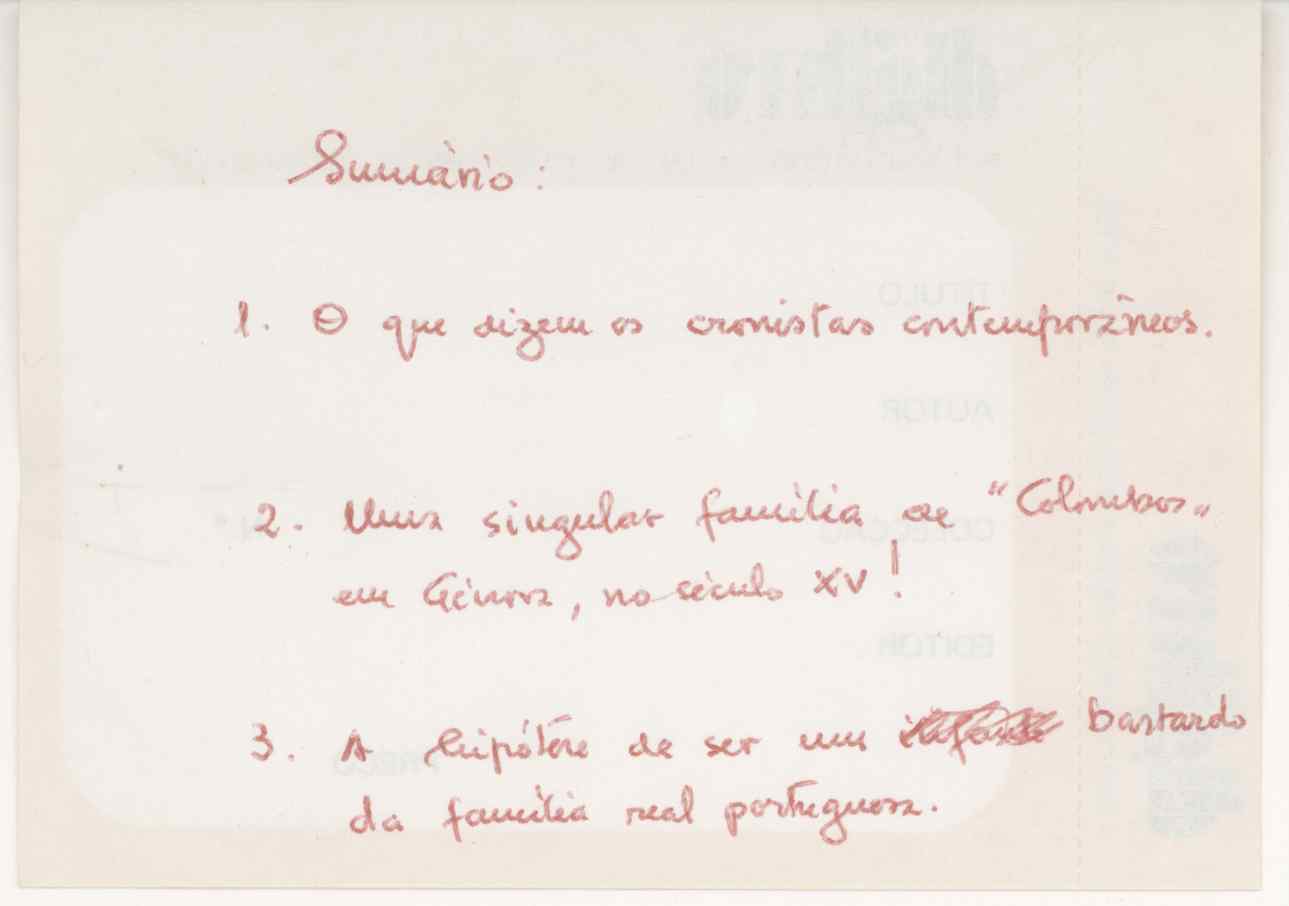 Sumário:
1. O que dizem os cronistas contemporâneos.
2. Uma singular família de "Colombos"
em Génova, no século XV!
3. A hipótese de ser um bastardo
da família real portuguesa.
TITULO
AUTOR
COLECÇÃO Nº
EDITOR
PREÇO